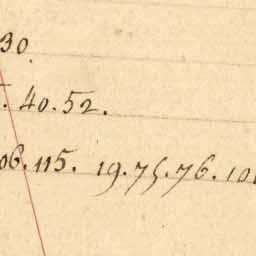 30.
40. 52.
06. 115. 19. 75. 76. 10